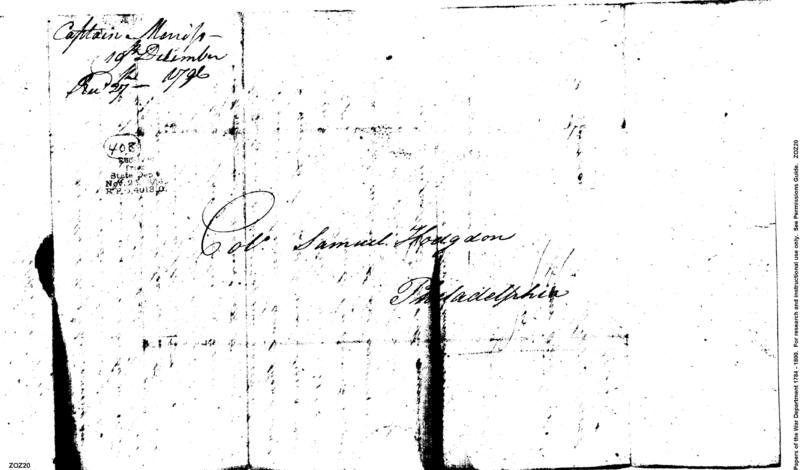 Captain Merrill
19th December
Recd 27th 1796
408
Received
from
State Dept
Nov. 2
Colo. Samuel Hodgdon
Philadelphia
apers of the War Department 1784 - 1800. For research and instructional use only. See Permissions Guide. ZOZ20
ZOZ20